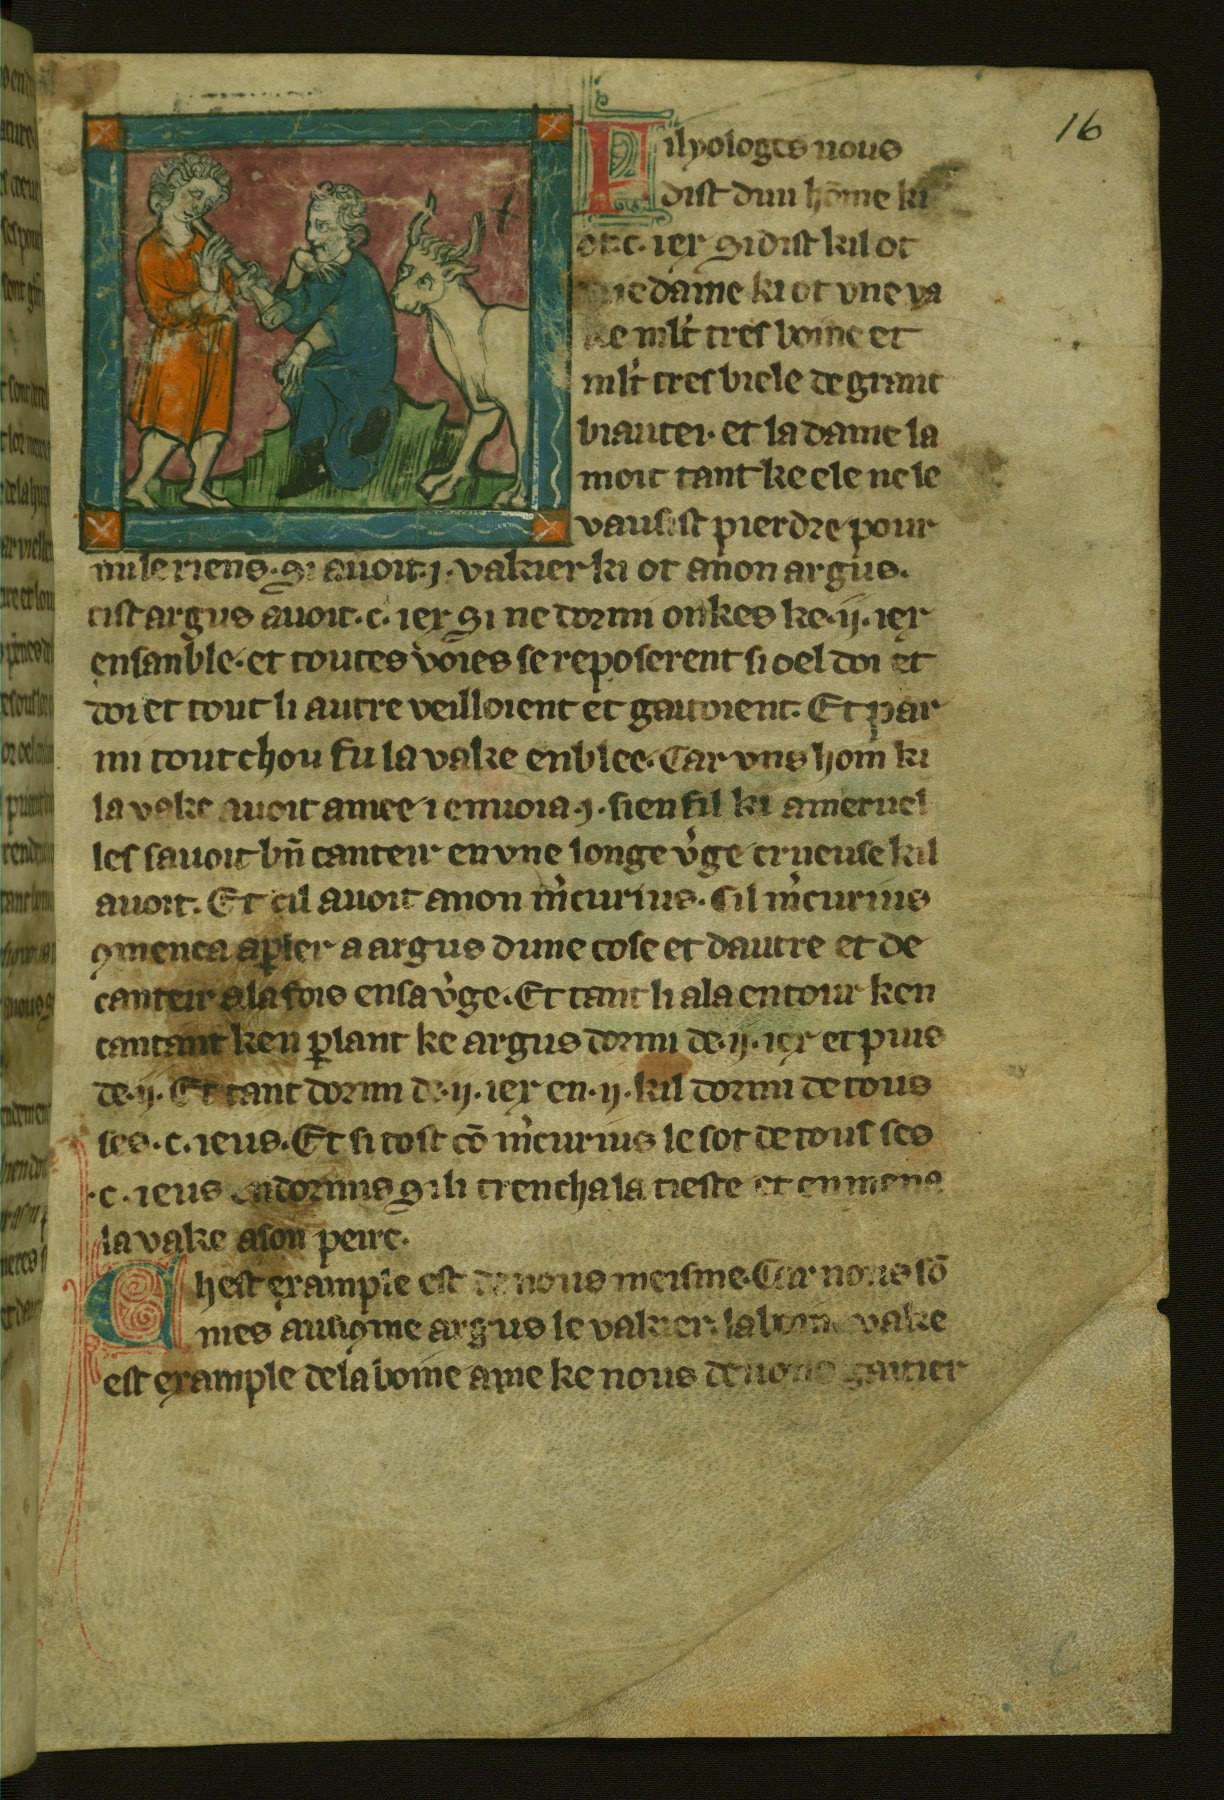 16
Filyologes nous
dist dun hōme ki
ot .c. iex si dist kil ot
dame ki ot vne va
ke ml't tres boine et
ml't tres biele de grant
biautei. et la dame la
moit tant ke ele ne le
vausist pierdre pour
nule riens. si auoit .j. vakier ki ot a non argus.
cist argus auoit .c. iex si ne dormi onkes ke .ij. iex
ensanble. et toutes voies se reposerent si oel doi et
doi et tout li autre veilloient et gaitoient. Et par
mi tout chou fu la vake enblee. Car vns hom ki
la vake auoit amee i enuoia .j. sien fil ki a meruel
les sauoit bn̄ canteir en vne longe v'ge crueuse kil
auoit. Et cil auoit a non m'curius. Cil m'curius
ꝯmenca a ꝑler a argus dune cose et dautre et de
canteir a la fois en sa v'ge. Et tant li ala entour ken
cantant ken ꝑlant ke argus dormi de .ij. iex et puis
de .ij. Et tant dormi de .ij. iex en .ij. kil dormi de tous
ses .c. ieus. Et si tost cō m'curius le sot de tous ses
.c. ieus endormis si li trencha la tieste et enmena
la vake a son peire.
Chest example est de nous meisme. Car nous sō
mes ausi ꝯme argus le vakier. la boine vake
est example de la boine ame ke nous deuons gaitier